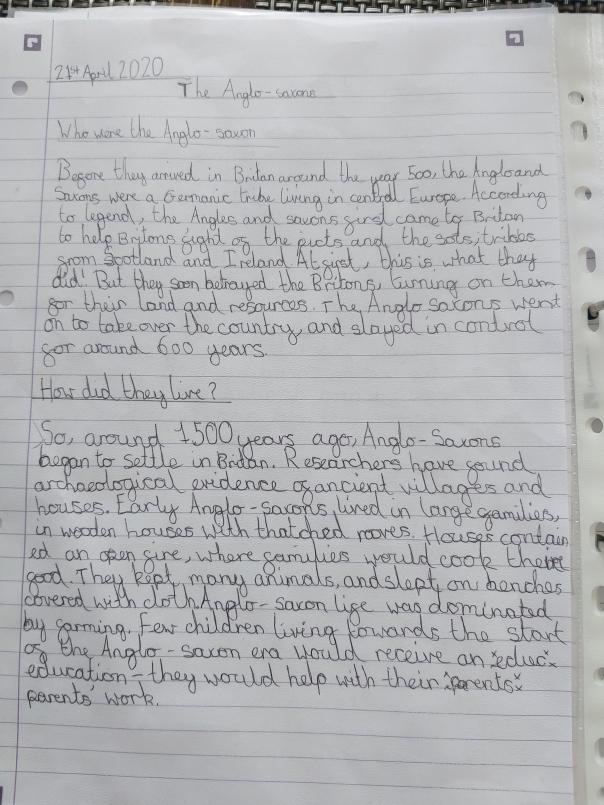 21st April 2020
The Anglo-saxons
Who were the Anglo-saxon
Before they arrived in Britan around the year 500, the Angloand
Saxons were a Germanic tribe living in central Europe. According
to legend, the Angles and saxons first came to Britan
to help Britons fight of the picts and the scots, tribes
from Scotland and Ireland. At first, this is what they
did! But they soon betrayed the Britons, turning on them
for their land and resources. The Anglo saxons went
on to take over the country, and stayed in control
for around 600 years.
How did they live?
So, around 1500 years ago, Anglo-Saxons
began to settle in Britan. Researchers have found
archaeological evidence of ancient villages and
houses. Early Anglo-saxons lived in large families,
in wooden houses with thatched rooves. Houses contain
ed an open fire, where families would cook there
food. They kept many animals, and slept on benches
covered with cloth. Anglo-saxon life was dominated
by farming. Few children living towards the start
of the Anglo-saxon era would receive an educ
education - they would help with their parents
parents' work.